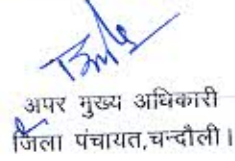 अपर मुख्य अधिकारी
जिला पंचायत,चन्दौली।